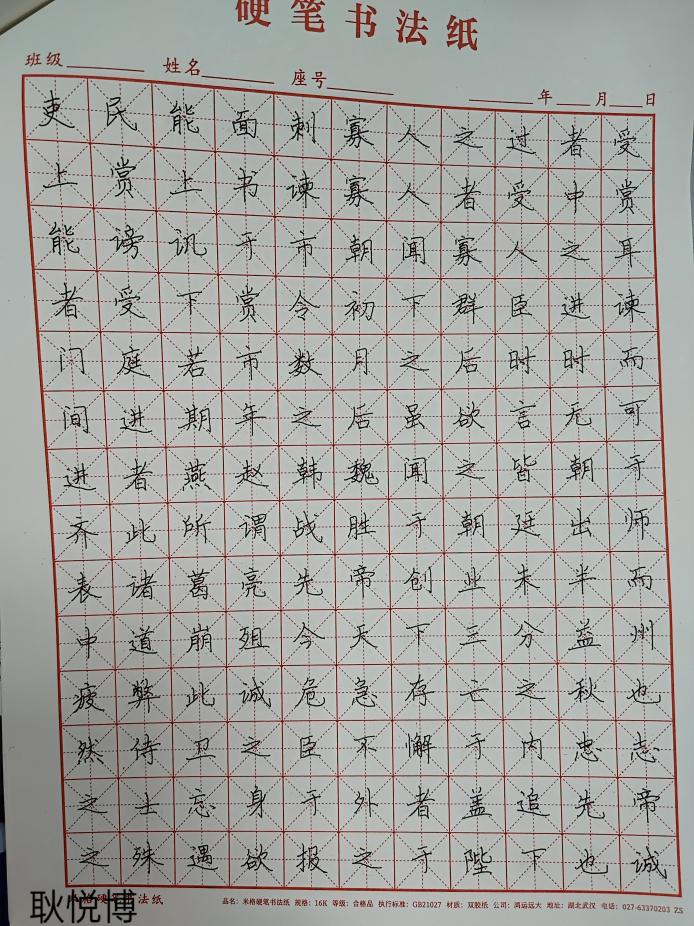 硬笔书法纸
班级 姓名 座号 年 月 日
吏民能面刺寡人之过者受
上赏上书谏寡人者受中赏
能谤讥于市朝闻寡人之耳
者受下赏令初下群臣进谏
门庭若市数月之后时时而
间进期年之后虽欲言无可
进者燕赵韩魏闻之皆朝于
齐此所谓战胜于朝廷出师
表诸葛亮先帝创业未半而
中道崩殂今天下三分益州
疲弊此诚危急存亡之秋也
然侍卫之臣不懈于内忠志
之士忘身于外者盖追先帝
之殊遇欲报之于陛下也诚
硬笔书法纸 品名：米格硬笔书法纸 规格：16K 等级：合格品 执行标准：GB21027 材质：双胶纸 公司：鸿运远大 地址：湖北武汉 电话：027-63370203 ZS
耿悦博